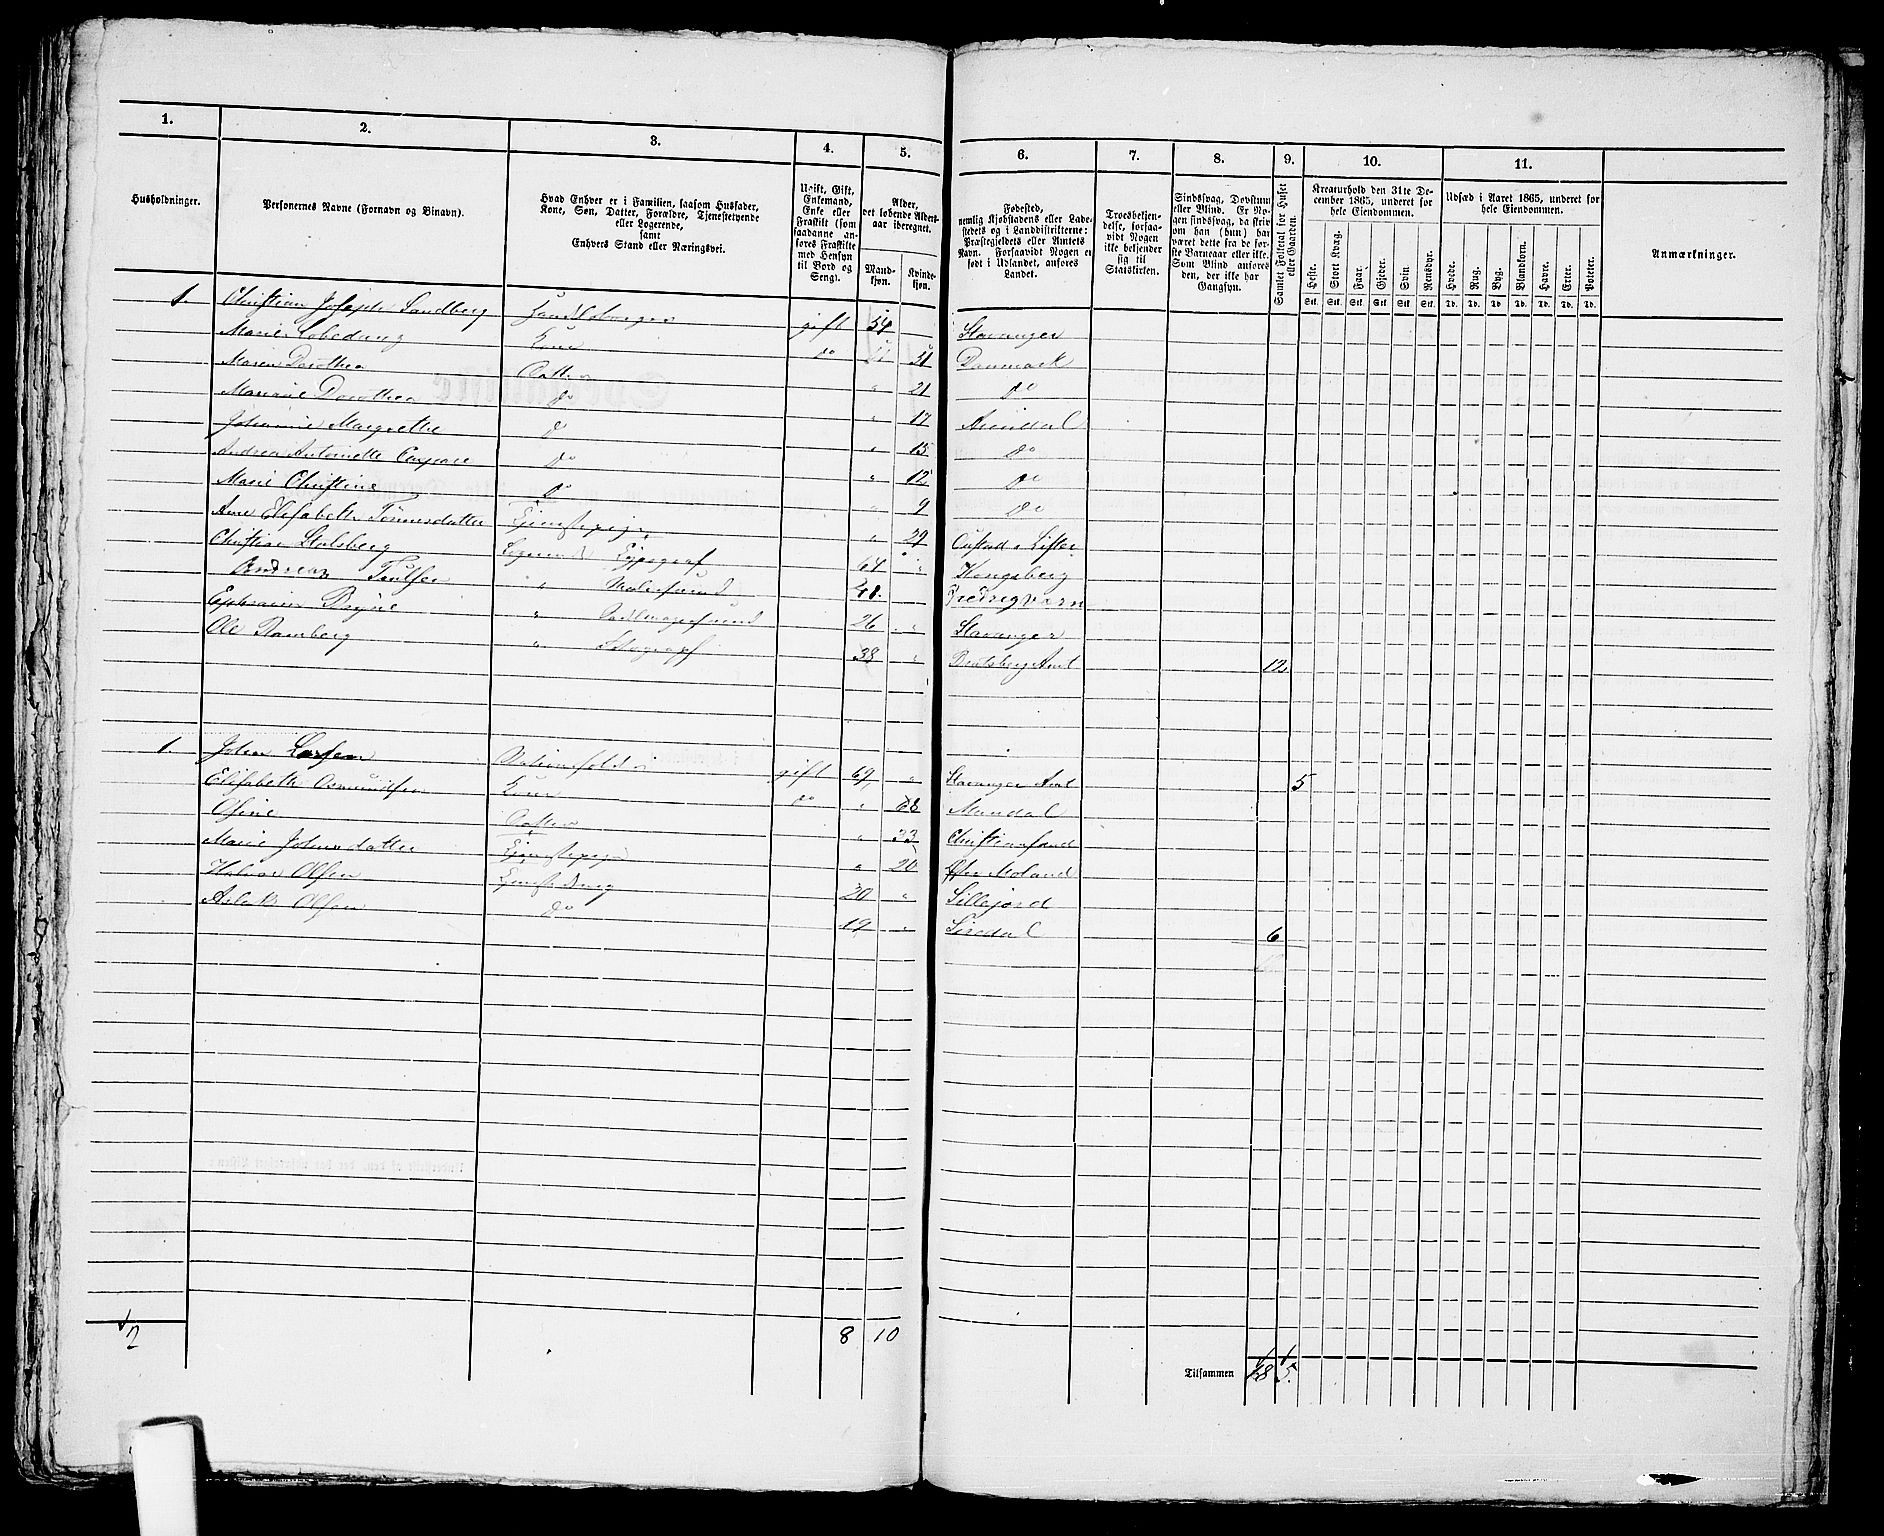 1. 2. 3. 4. 5. 6. 7. 8. 9. 10. 11.
Husholdninger.
Personernes Navne (Fornavn og Binavn).
Hvad Enhver er i Familien, saasom Husfader,
Kone, Søn, Datter, Forældre, Tjenestetyende
eller Logerende,
samt
Enhvers Stand eller Næringsvei.
Ugift, Gift,
Enkemand,
Enke eller
Fraskilt (som
saadanne an-
føres Fraskilte
med Hensyn
til Bord og
Seng).
Alder,
det løbende Alders-
aar iberegnet.
Mand-
kjøn.
Kvinde-
kjøn.
Fødested,
nemlig Kjøbstadens eller Lade-
stedets og i Landdistrikterne:
Præstegjeldets eller Amtets
Navn. Forsaavidt Nogen er
født i Udlandet, anføres
Landet.
Troesbekjen-
delse, forsaa-
vidt Nogen
ikke bekjender
sig til
Statskirken.
Sindssvag, Døvstum
eller Blind. Er No-
gen sindssvag, da skriv
om han (hun) har
været dette fra de før-
ste Barneaar eller ikke.
Som Blind ansøres
den, der ikke har
Gangsyn.
Samlet Folketal for Huset
eller Gaarden.
Kreaturhold den 31te De-
cember 1865, underet for
hele Eiendommen.
Heste. Stort Kvæg. Faar. Gjeder. Svin. Rensdyr.
Stk. Stk. Stk. Stk. Stk. Stk.
Udsæd i Aaret 1865, underet for
hele Eiendommen.
Hvede. Rug. Byg. Blandkorn. Havre. Erter. Poteter.
Td. Td. Td. Td. Td. Td. Td.
Anmærkninger.
1. Christian Joseph Sandberg Handelsborger gift 54 Stavanger
Marie Kone do 51 Danmark
Maren Dorothea Datter " 21 do
Mariane Dorothea do " 17 Arendal
Johanne Margrethe do " 15 do
Andrea Antonette do " 12 do
Marie Christine do " 9 do
Ane Elisabeth Tønnesdatter Tjenestepige " 29 Lister
Christian Stalsberg Logerende Typograf 64 " Kongsberg
Andreas " Malersvend 48. Fredrigsværn
Ephraim Bryne " Sadlmagersvend 26 " Stavanger
Ole Ramberg " 38 " Bratsberg Amt 12
1. John Larsen gift 69 " Stavanger Amt 5
Elisabeth Osmundsen Kone do " 68 Mandal
Datter " 33 Christiansand
Marie Johnsdatter Tjenestepige " 20 Øster Moland
Halvor Olsen Tjenestedreng 20 " Sillejord
Aslak Olsen do 19 " Siredal 6
2 8 10
Tilsammen 18 5.